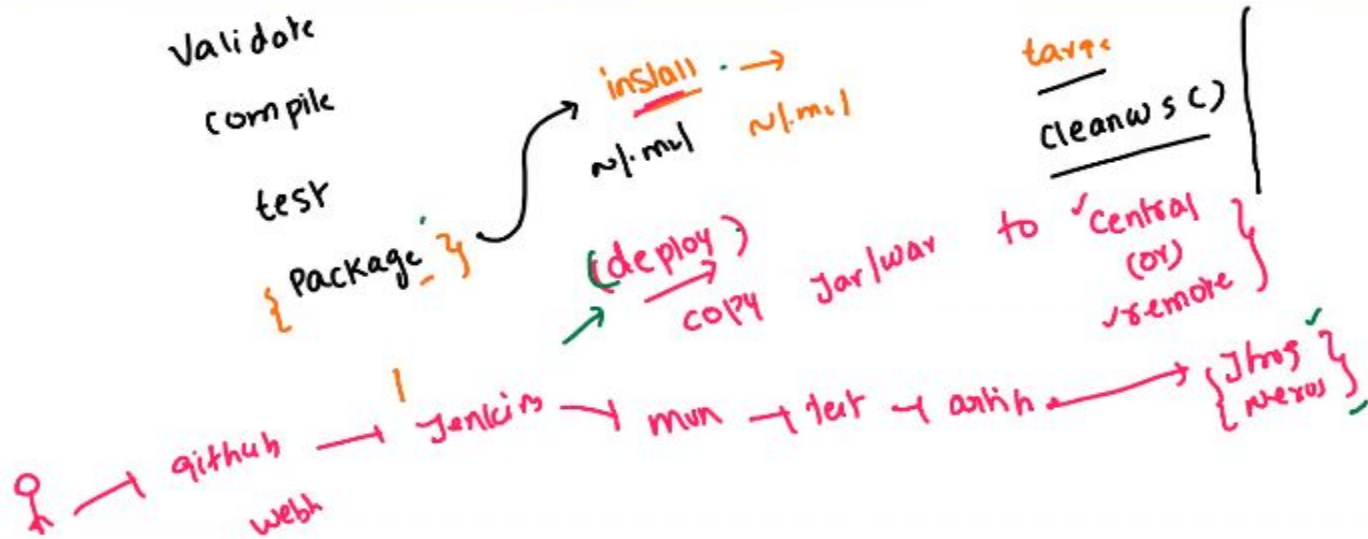 Validate
compile
test
{ Package }
install
~/.m2/
~/.m2/
targe
cleanws()
(deploy)
copy Jar/war to central
(or)
remote }
github
webh
Jenkins
mvn
test
{ Jfrog }
nexus